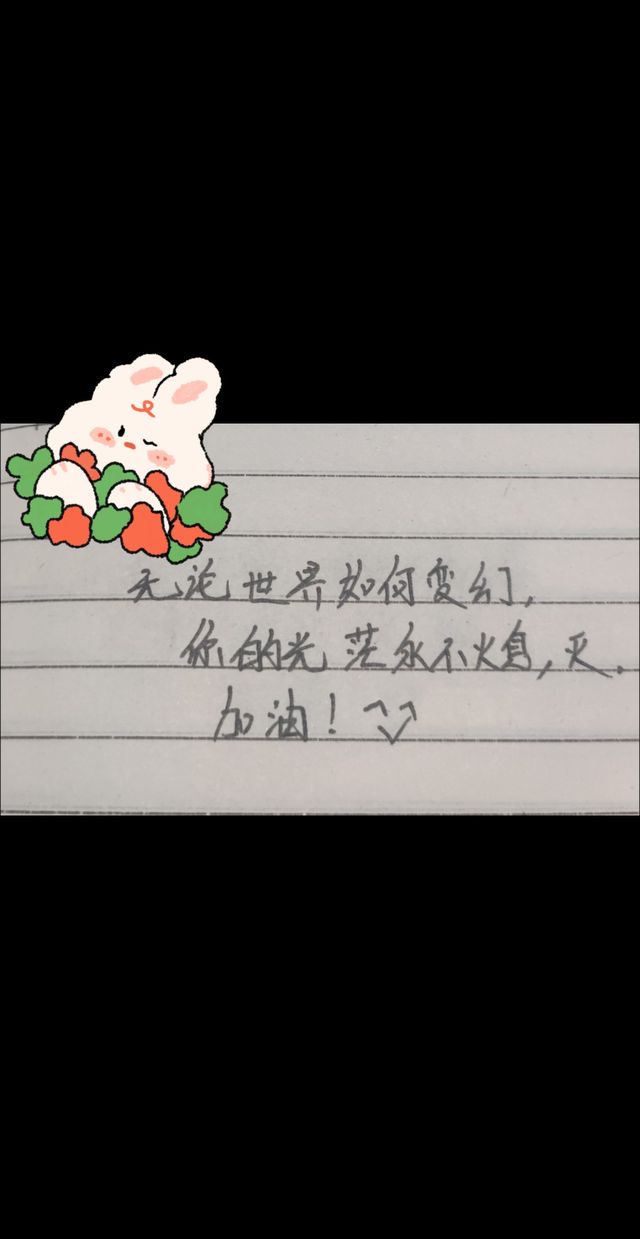 无论世界如何变幻，
你的光茫永不熄灭.
加油！